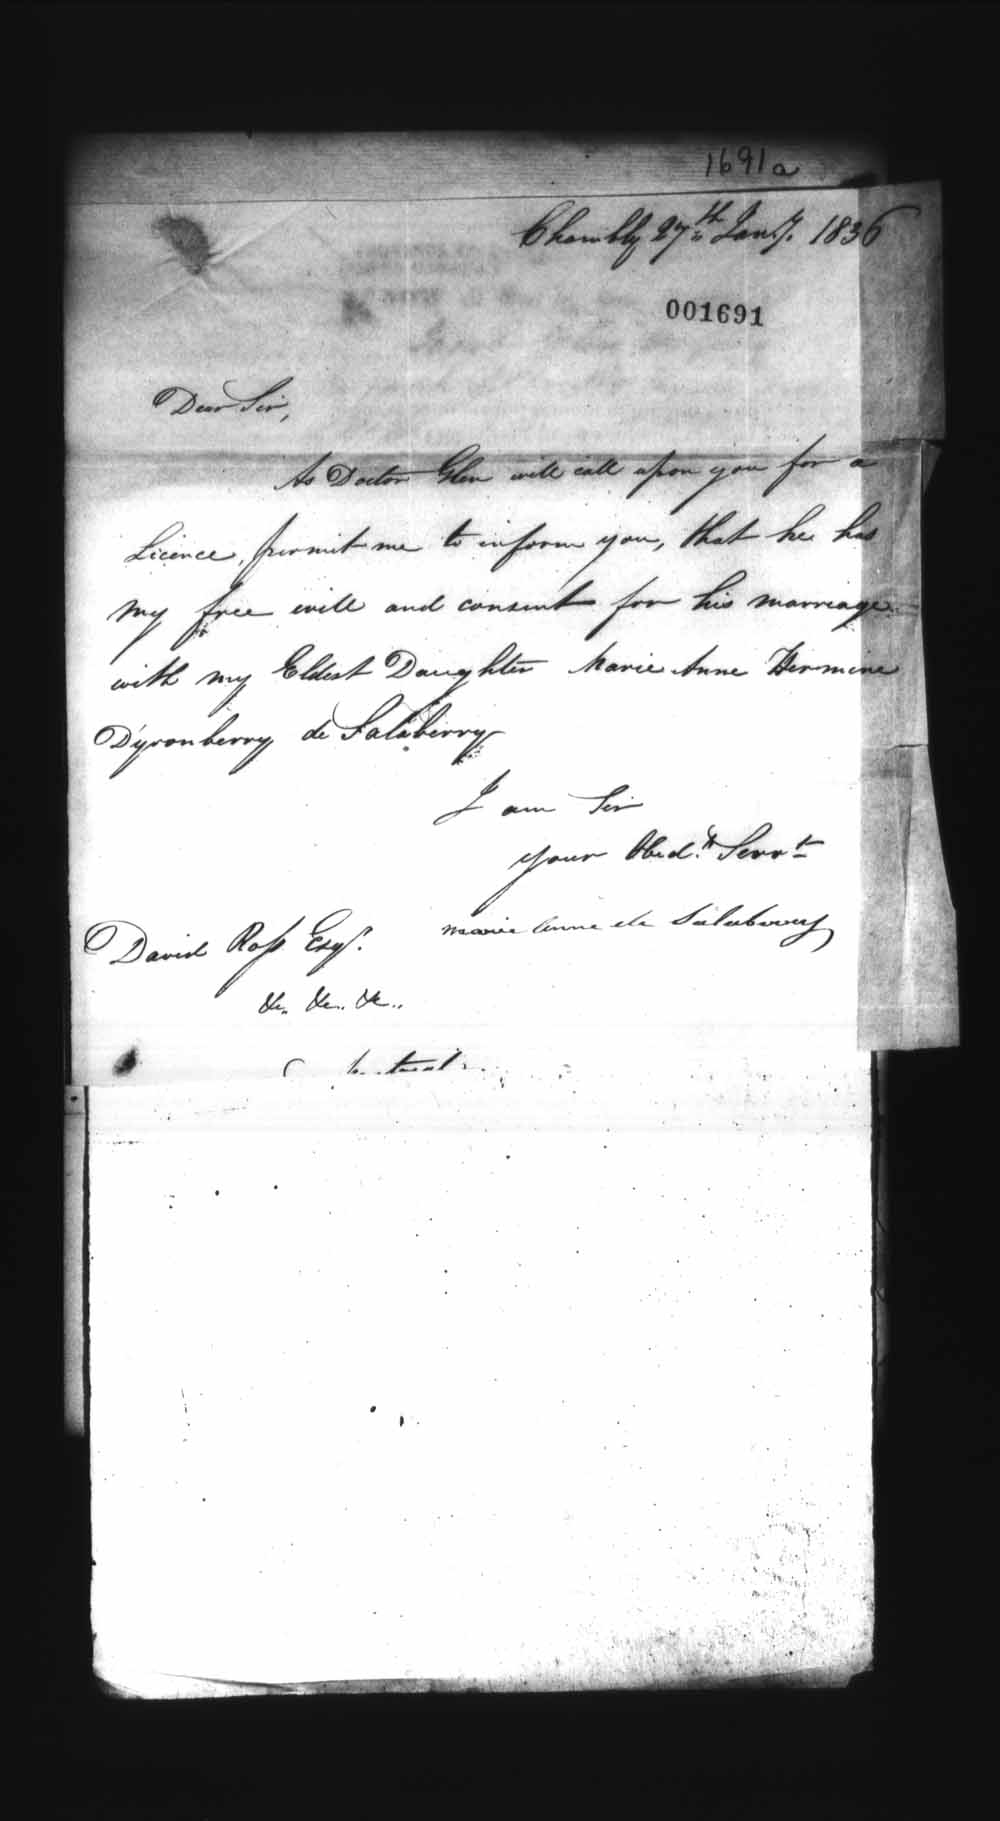 1691a
Chambly 27th Jany. 1836
001691
Dear Sir,
As Doctor Glen will call upon you for a
Licence, permit me to inform you, that he has
my free will and consent for his marriage
with my Eldest Daughter Marie Anne Hermine
D'yronberry de Salaberry
I am Sir
your Obedt. Servt
marie anne de Salaberry
David Ross Esqr.
&c. &c. &c.